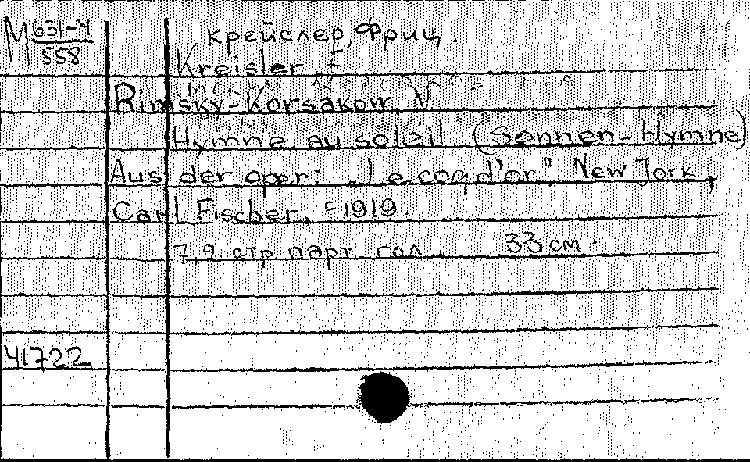 М 631-4
558
Крейслер, Фриц
Kreisler F
Rimsky-Korsakow N
Hymne au soleil (Sonnen-Hymne)
Aus der oper: "Le coq d'or". New York,
Carl Fischer, c1919.
7,9 стр парт. гол 33 см.
41722